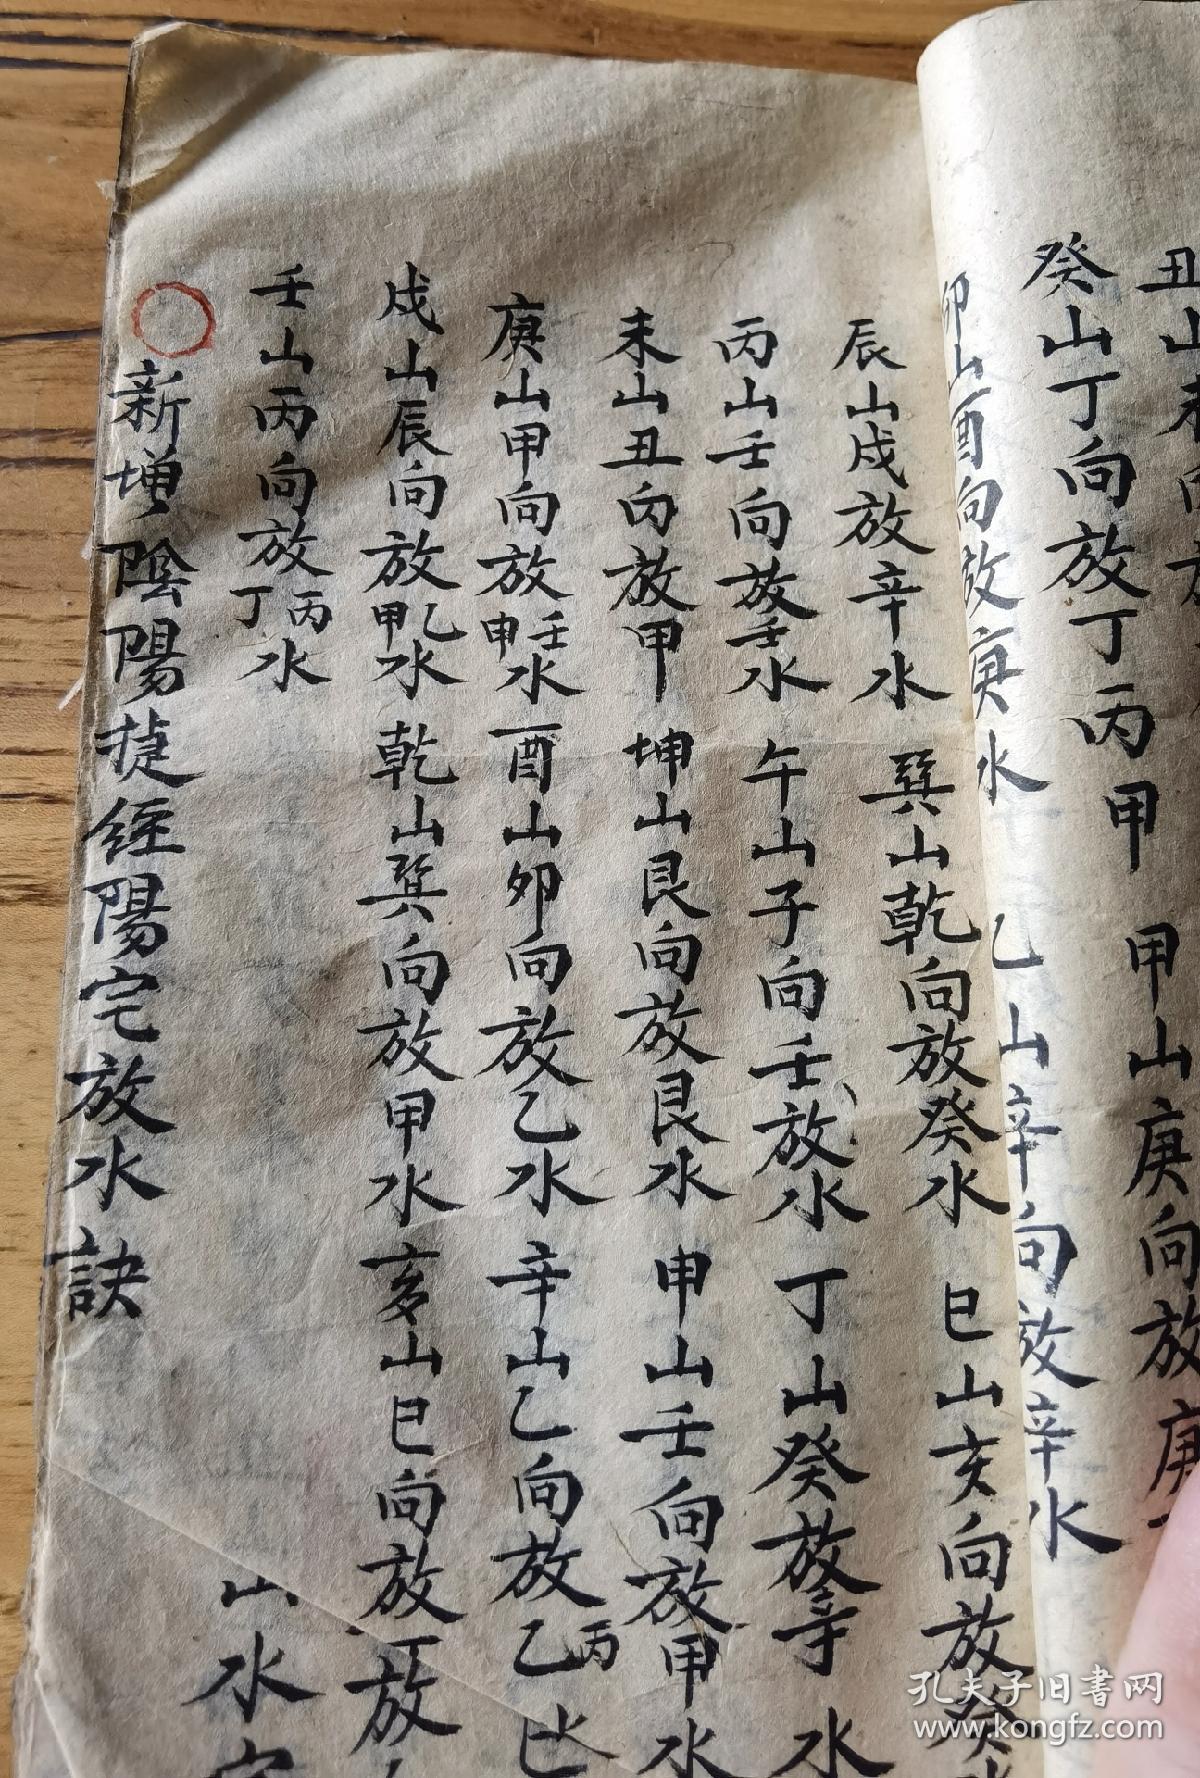 丑山未向放
癸山丁向放丁丙甲 甲山庚向放庚
卯山酉向放庚水 乙山辛向放辛水
辰山戌放辛水 巽山乾向放癸水 巳山亥向放癸水
丙山壬向放壬水 午山子向壬放水 丁山癸放辛水
未山丑向放甲 坤山艮向放艮水 申山壬向放甲水
庚山甲向放壬申水 酉山卯向放乙水 辛山乙向放乙丙
戌山辰向放乙甲水 乾山巽向放甲水 亥山巳向放丁放
壬山丙向放丙丁水
山水
新增陰陽捷經陽宅放水訣
孔夫子旧書网
www.kongfz.com